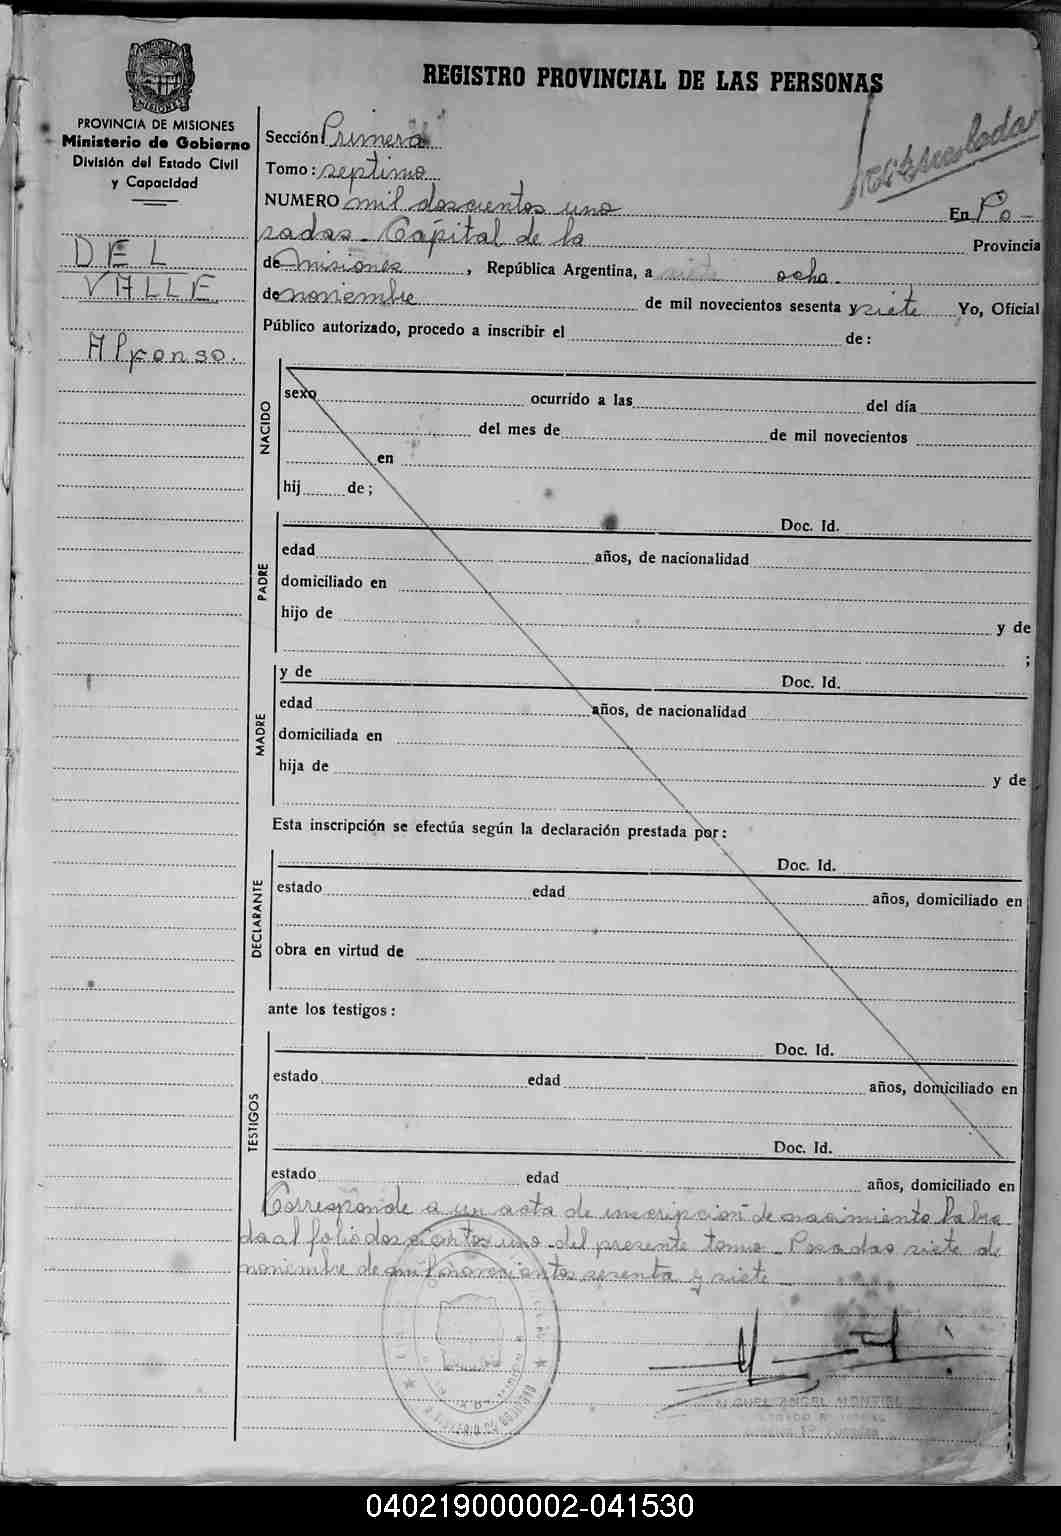 REGISTRO PROVINCIAL DE LAS PERSONAS
PROVINCIA DE MISIONES
Ministerio de Gobierno
División del Estado Civil
y Capacidad
DEL
VALLE
Alfonso.
Sección: Primera
Tomo: septimo
NUMERO mil doscientos uno En Po-
sadas - Capital de la Provincia
de Misiones, República Argentina, a siete ocho.
de noviembre de mil novecientos sesenta y siete Yo, Oficial
Público autorizado, procedo a inscribir el de:
NACIDO
sexo ocurrido a las del día
del mes de de mil novecientos
en
hij de;
PADRE
Doc. Id.
edad años, de nacionalidad
domiciliado en
hijo de y de
;
MADRE
y de Doc. Id.
edad años, de nacionalidad
domiciliada en
hija de y de
Esta inscripción se efectúa según la declaración prestada por:
DECLARANTE
Doc. Id.
estado edad años, domiciliado en
obra en virtud de
ante los testigos:
TESTIGOS
Doc. Id.
estado edad años, domiciliado en
Doc. Id.
estado edad años, domiciliado en
Corresponde a un acta de inscripcion de nacimiento labra
da al folio doscientos uno del presente tomo. Posadas siete de
noviembre de mil novecientos sesenta y siete
MIGUEL ANGEL
040219000002-041530